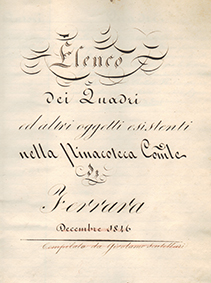 Elenco
dei Quadri
ed altri oggetti esistenti
nella Pinacoteca Com.le
di
Ferrara
Decembre 1846
Compilato da